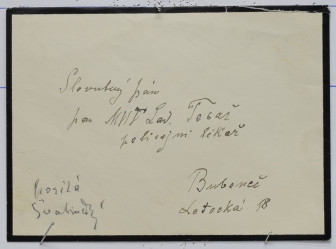 Slovutný pán
pan MUDr Lad. Tobař
policejní lékař
Bubeneč
Letocká 18
posílá